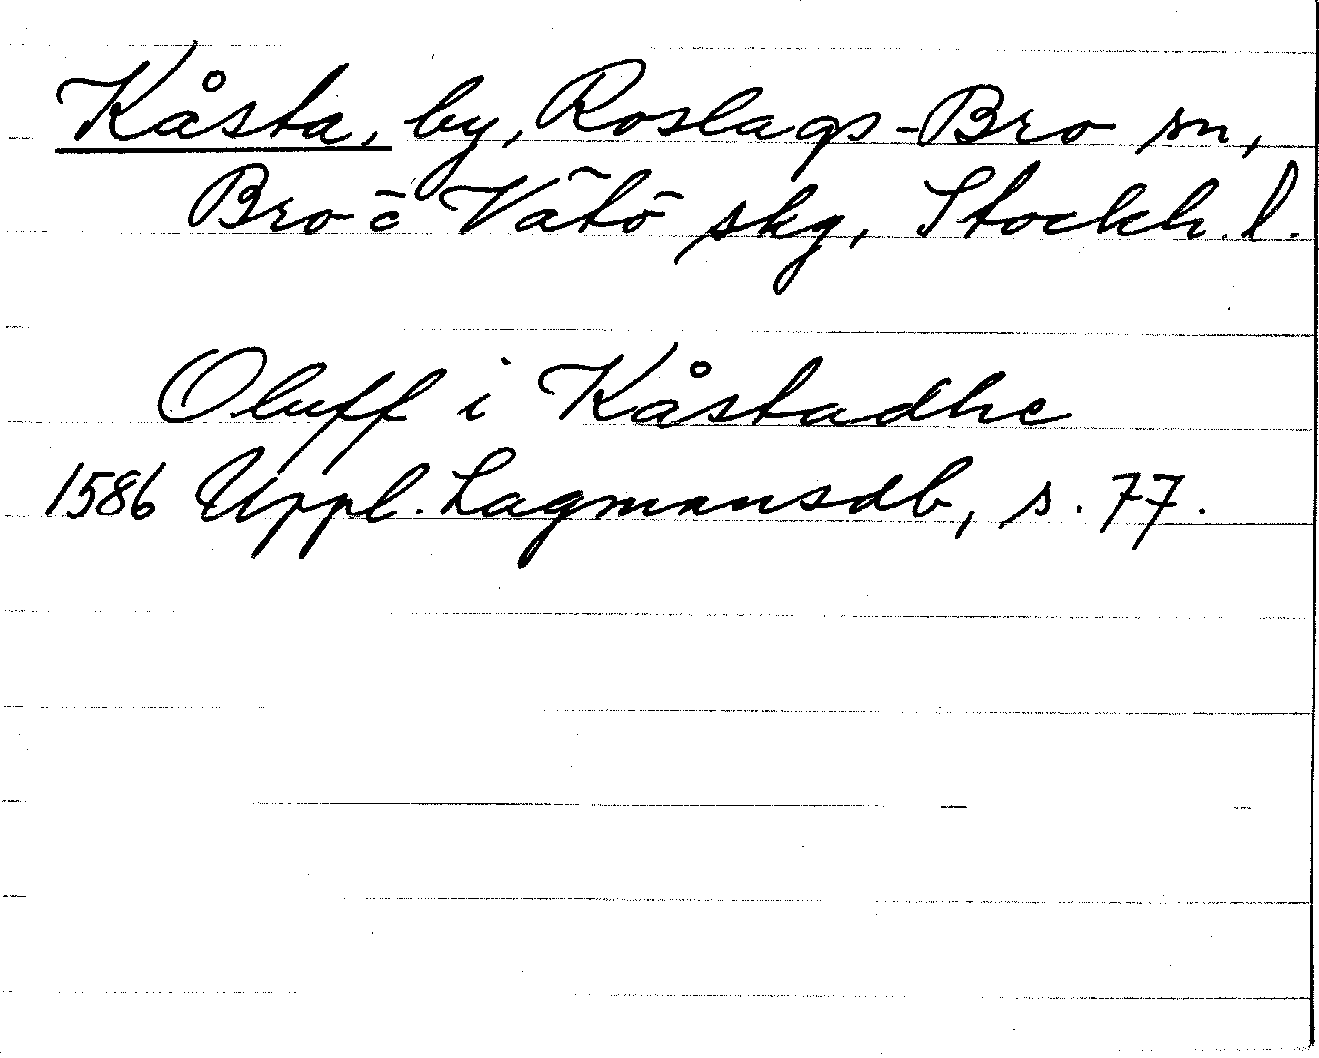 Kåsta, by, Roslags-Bro sn,
Bro o Vätö skg, Stockh. l.
Oluff i Kåstadhe
1586 Uppl. Lagmansdb, s. 77.